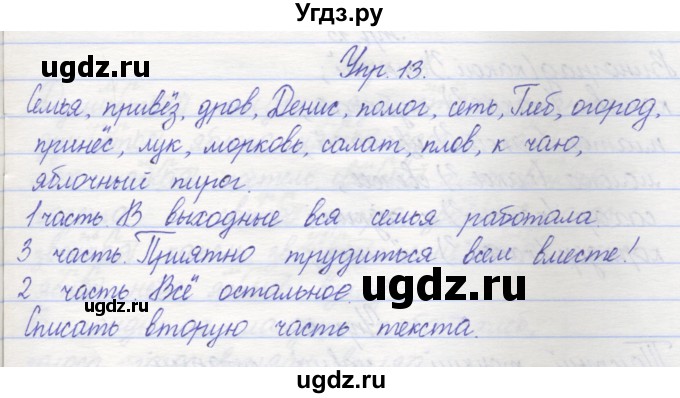 Угдз.ру
Упр. 13.
ugdz.ru
ugdz.ru
Семья, привёз, дров, Денис, помог, сеть, Глеб, огород,
принёс, лук, морковь, салат, плов, к чаю,
яблочный пирог.
1 часть. В выходные вся семья работала
3 часть. Приятно трудиться всем вместе!
2 часть. Всё остальное
ugdz.ru
ugdz.ru
Списать вторую часть текста.
ugdz.ru